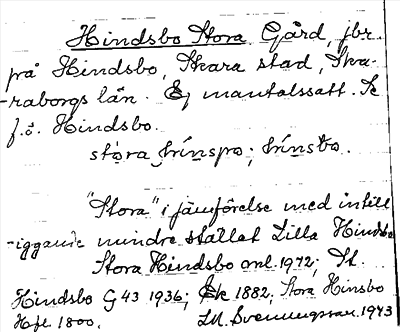 Hindsbo Stora Gård, jbr.
på Hindsbo, Skara stad, Ska-
-raborgs län. Ej mantalssatt. Se
f.ö. Hindsbo.
stora hinspo, hinsbo.
"Stora" i jämförelse med intill
-iggande mindre stället Lilla Hindsbo
Stora Hindsbo onl. 1972; St.
Hindsbo G 43 1936; Gk 1882; Stora Hinsbo
Hfl 1800. I.M. Svenningsson 1973